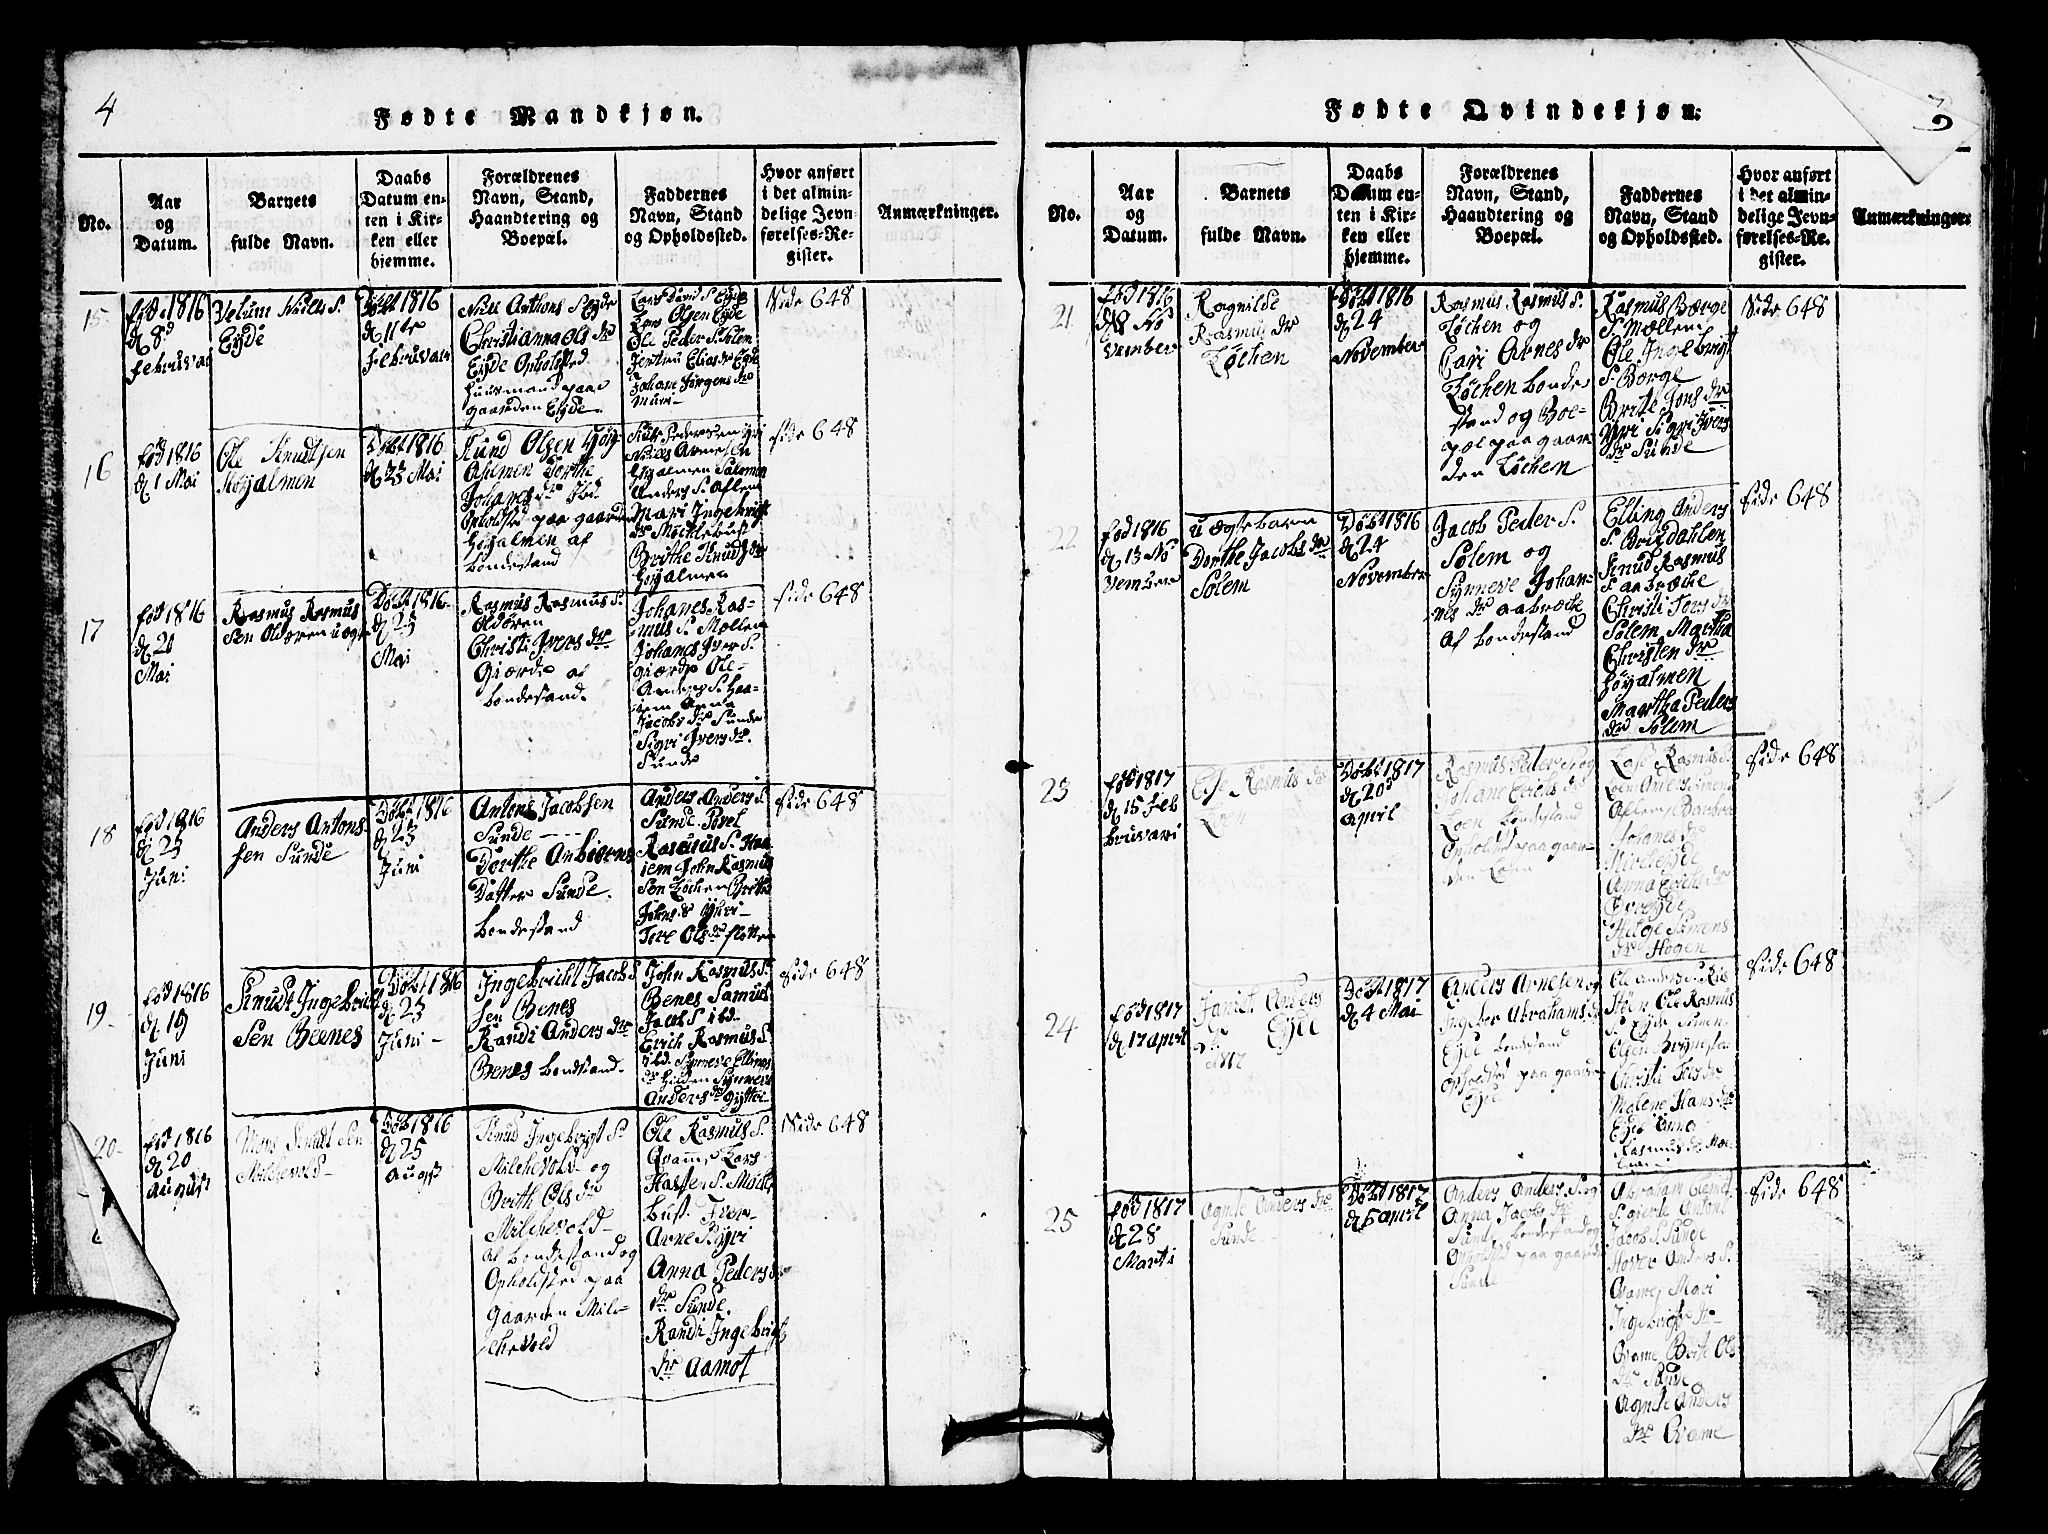 4
Fødte Mandkjøn.
No.
Aar
og
Datum.
Barnets
fulde Navn.
Daabs
Datum en-
ten i Kir-
ken eller
hjemme.
Forældrenes
Navn, Stand,
Haandtering og
Boepæl.
Faddernes
Navn, Stand
og Opholdssted.
Hvor anført
i det almin-
delige Jevn-
førelses-Re-
gister.
Anmærkninger.
15
fød 1816
d 8d
februvar
Niels S.
Eyde
Døbt 1816
d 11te
februvari
Niels Anthons S Eyde
Christianna Ols dr
Eyde Opholdsted
huusmand paa
gaarden Eyde
Ole Peder S. Solem
Jentru Elias dr Eyde
Johane Jørgens dr
Muri
Side 648
16
fød 1816
d 1 Mai
Ole Knudtsen
Høyalmen
Døbt 1816
d 23 Mai
Knud Olsen Høy-
almen Dorthe
Johanes dr Ibd.
Opholdsted paa gaarden
Høyalmen af
bondestand
Anders S. Aflem
Mari Ingebrigt
dr Mycklebust
Brithe Knuds dr
Høyalmen
Side 648
17
fød 1816
d 20
Mai
Rasmus Rasmus
Sen Oldøren uægte
Døbt 1816
d 23
Mai
Rasmus Rasmus S.
Oldøren
Christi Ivers dr
Giærde af
bondestand.
Johanes Ras-
mus S. Møllen
Johanes Iver S.
giærde Ole-
Anders S. Haa-
iem Anna
Jacobs dr Sunde
Sigri Ivers dr
Sunde
Side 648
18
fød 1816
d 23
Juni
Anders Antons-
sen Sunde
Døbt 1816
d 23
Juni
Antons Jacobsen
Sunde
Dorthe Anbiørns
Datter Sunde.
bondestand
Anders Anders S.
Sunde Povel
Rasmus S. Haa-
iem John Rasmus
Sen Løchen Brithe
Johns dr Yhri-
Tore Ols dr flotten
Side 648
19
fød 1816
d 19
Juni
Knudt Ingebricht
Sen Beenes
Døbt 1816
d 23
Juni
Ingebricht Jacob S.
sen Benes
Randi Anders dr
Benes bondestand.
John Rasmus S.
Benes Samus
Jacob S ibd.
Erich Rasmus S.
ibd. Synneve Ellings
dr Hilden Synneve
Anders dr gytter
Side 648
20
fød 1816
d 20
August
Mons Knudt Sen
Mildevold
Døbt 1816
d 25
August
Knud Ingebrigt S.
Milchevold og
Brith Ols dr
Milchevold
af bondestand og
Opholdsted paa
gaarden Mil-
chevold
Ole Rasmus S.
Qvamme Lars
Hassen S. Myckle
bust Iver
Arne S. Yri
Anna Peders
dr Sunde.
Randi Ingebrigt
dr Aamot
Side 648
3
Fødte Qvindekjøn.
No.
Aar
og
Datum.
Barnets
fulde Navn.
Daabs
Datum en-
ten i Kir-
ken eller
hjemme.
Forældrenes
Navn, Stand,
Haandtering og
Boepæl.
Faddernes
Navn, Stand
og Opholdssted.
Hvor anført
i det almin-
delige Jevn-
førelses-Re-
gister.
Anmærkninger.
21
fød 1816
d 18 No
vember
Ragnilde
Rasmus dr
Løchen
Døbt 1816
d 24
November
Rasmus Rasmus S.
Løchen og
Cari Arnes dr
Løchen bonde
stand og Boe-
pæl paa gaar-
den Løchen
Rasmus Børge
S. Møllem
Ole Ingebrigt
S. Børge
Brithe Jons dr
Yri Sigri Ivers
dr Sunde
Side 648
22
fød 1816
d 13 No
vember
uægte barn
Dorthe Jacobs dr
Solem
Døbt 1816
d 24
November
Jacob Peder S.
Solem og
Synneve Johan-
nes dr aabrecke
af bondestand
Elling Anders
S. Brixdahlen
Knud Rasmus
S. aabrecke
Christi Tors dr
Solem Martha
Christen dr
høyalmen
Martha Peders
dr Solem
Side 648
23
fød 1817
d 15 Feb
bruvari
Else Rasmus dr
Loen
Døbt 1817
d 20d
april
Rasmus Peder S. og
Johane Erichs dr
Loen bondestand
Opholdsted paa gaar-
den Loen
Lasse Rasmus S.
Johanes dr
Anna Erichs dr
Helge Simens
dr Hogen
Side 648
24
fød 1817
d 17 april
Janich Anders
dr Eyde
1817
Døbt 1817
d 4 Mai
Anders Arnesen og
Ingeber Abrahams dr
Eyde bondestand
opholdsted paa gaarden
Eyde
Ole Anders S. Ris
tøen Ole Rasmus
S. Eyde Simen
Olsen Bryn
Christi Tors dr
Malene Hans dr
Eyde Anna
Rasmus dr
Side 648
25
fød 1817
d 28
Marti
Agnete Anders dr
Sunde
Døbt 1817
d 6 april
Anders Anders S. og
Anna Jacobs dr
Sunde bondestand og
Opholdsted paa gaarden
Sunde
Abraham
S. gierde Antoni
Jacob S. Sunde
Anders S.
Qvame Mari
Ingebrigt dr
Qvame Brite Ols
dr Sunde
Agnete Anders
dr Qvame
Side 648